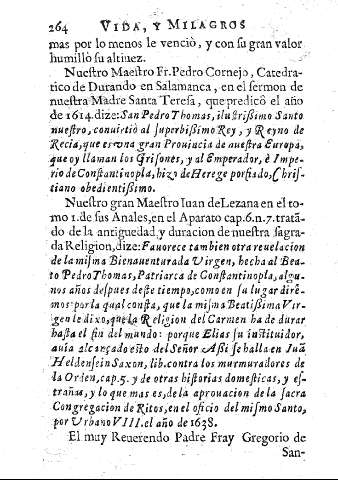 264 VIDA, Y MILAGROS
mas por lo menos le venciò, y con su gran valor
humillò su altivez.
Nuestro Maestro Fr. Pedro Cornejo, Catedra-
tico de Durando en Salamanca, en el sermon de
nuestra Madre Santa Teresa, que predicò el año
de 1614. dize: San Pedro Thomas, ilustrissimo Santo
nuestro, conuirtiò al superbissimo Rey, y Reyno de
Recia, que es vna gran Prouincia de nuestra Europa,
que oy llaman los Grisones, y al Emperador, è Impe-
rio de Constantinopla, hizo de Herege porfiado, Chris-
tiano obedientissimo.
Nuestro gran Maestro Iuan de Lezana en el to-
mo 1. de sus Anales, en el Aparato cap. 6. n. 7. tratã-
do de la antiguedad, y duracion de nuestra sagra-
da Religion, dize: Fauorece tambien otra reuelacion
de la misma Bienauenturada Virgen, hecha al Bea-
to Pedro Thomas, Patriarca de Constantinopla, algu-
nos años despues deste tiempo, como en su lugar dire-
mos: por la qual consta, que la misma Beatissima Vir-
gen le dixo, que la Religion del Carmen ha de durar
hasta el fin del mundo: porque Elias su instituidor,
auia alcançado esto del Señor. Assi se halla en Iuã
Heldensein Saxon, lib. contra los murmuradores de
la Orden, cap. 5. y de otras historias domesticas, y es-
trañas, y lo que mas es, de la aprouacion de la sacra
Congregacion de Ritos, en el oficio del mismo Santo,
por Urbano VIII. el año de 1638.
El muy Reuerendo Padre Fray Gregorio de
San-